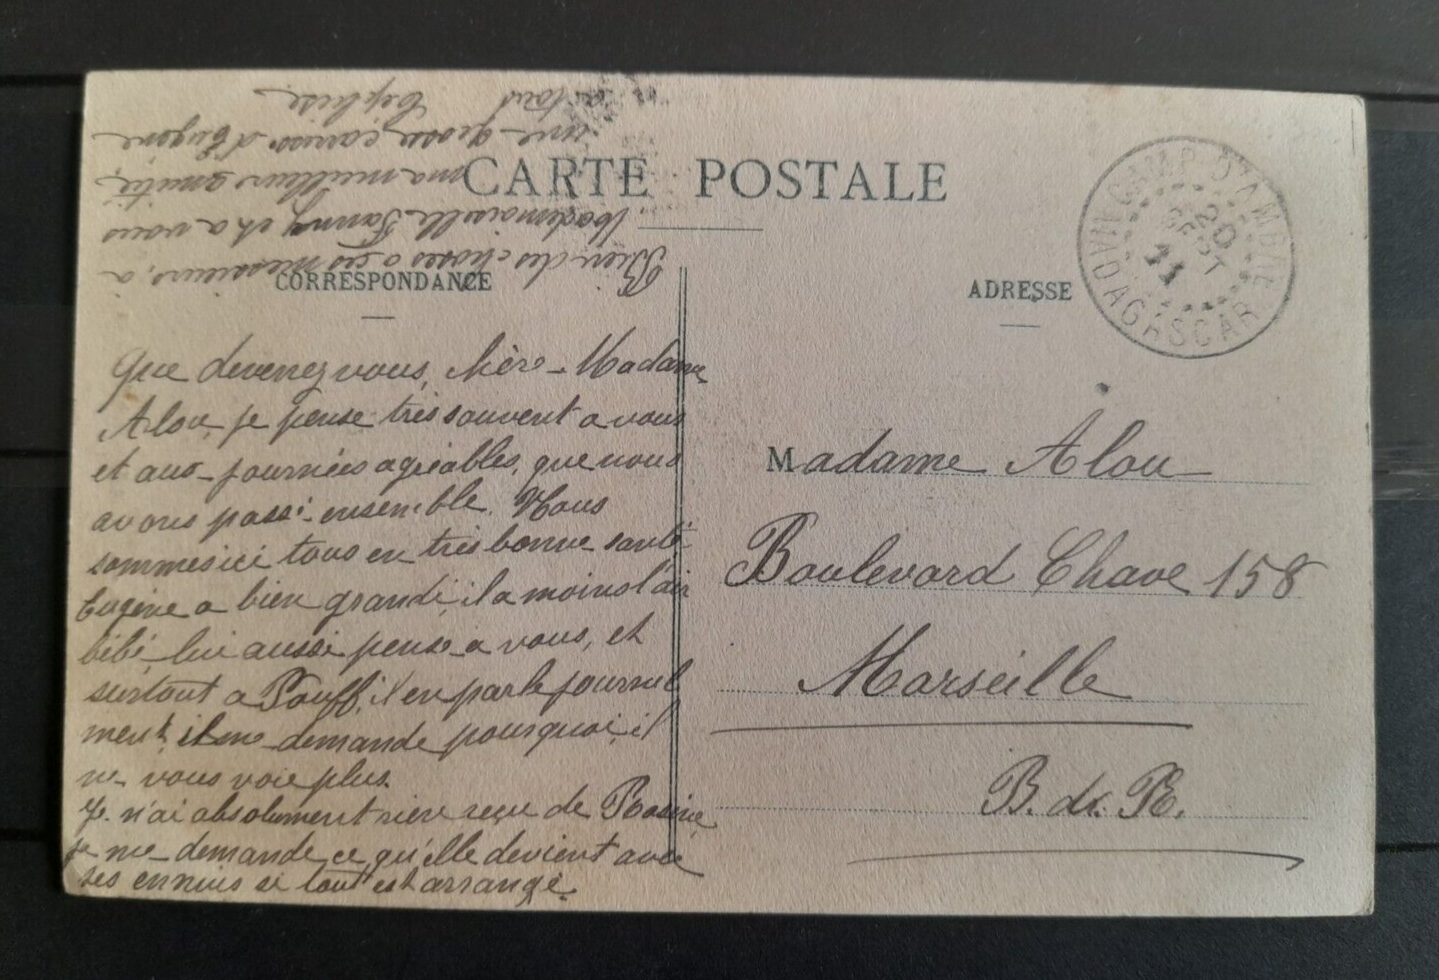 CARTE POSTALE
CORRESPONDANCE
ADRESSE
CAMP D'AMBRE
20
SEPT
11
MADAGASCAR
Que devenez vous, chère Madame
Alou, je pense très souvent a vous
et aux journées agréables, que nous
avons passé ensemble. Nous
sommes ici tous en très bonne santé
Eugène a bien grandi, il a moins l'air
bébé lui aussi pense a vous, et
surtout a Pouff, il en parle journel
ment, il me demande pourquoi, il
ne vous voie plus.
Je n'ai absolument rien reçu de
je me demande ce qu'elle devient avec
ses ennuis si tout est arrangé.
Bien des choses a ces messieurs, a
Mademoiselle Fanny et a vous
ma meilleure amitié,
une grosse caresse d'Eugène
a tous
Madame Alou
Boulevard Chave 158
Marseille
B. du R.